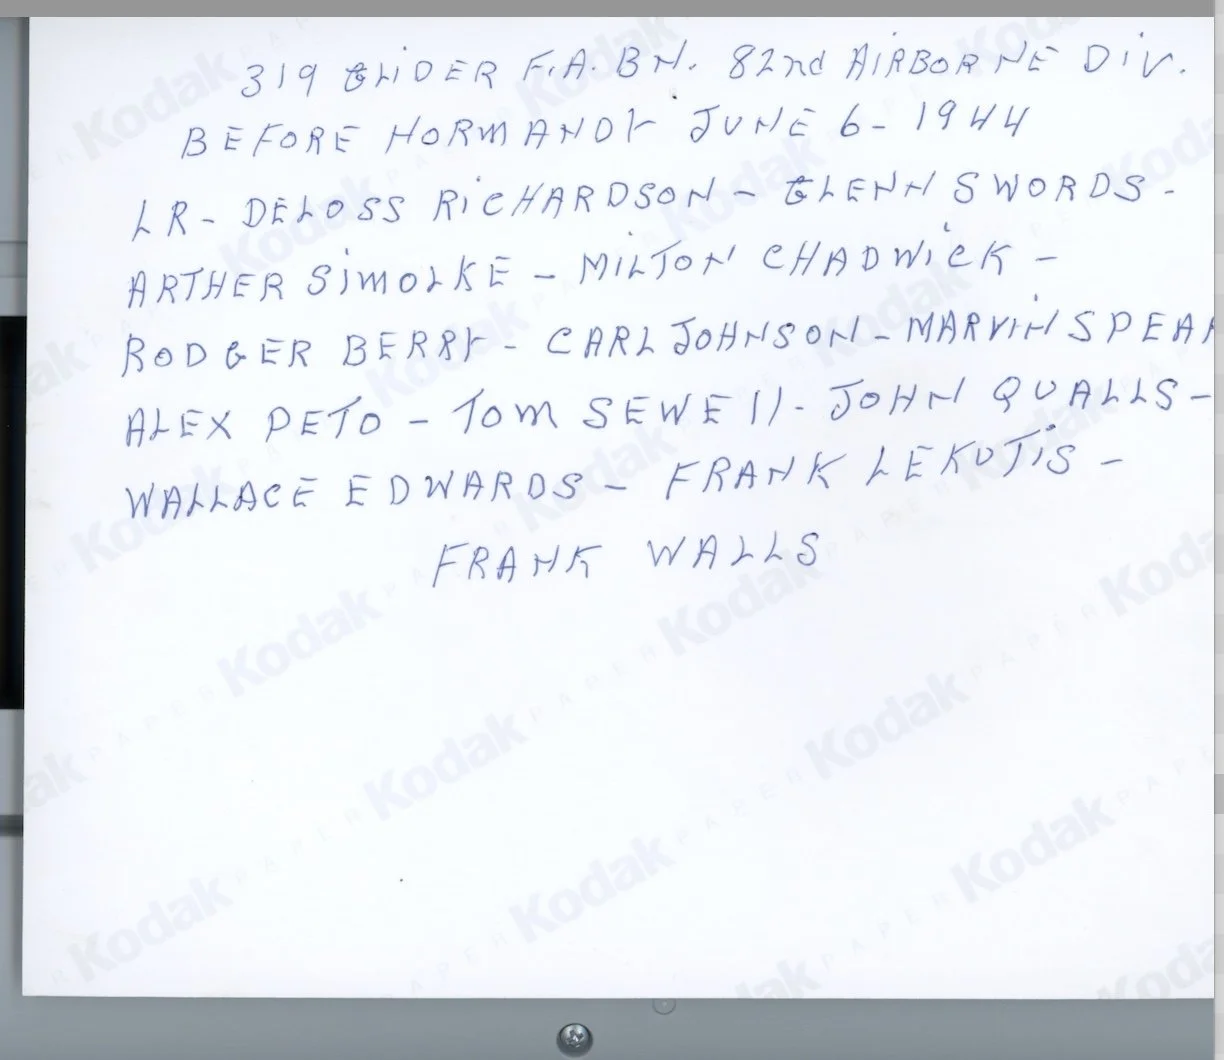 319 GLIDER F.A. BN. 82nd AIRBORNE DIV.
BEFORE NORMANDY JUNE 6- 1944
LR- DELOSS RICHARDSON - GLENN SWORDS -
ARTHER SIMOLKE - MILTON CHADWICK -
RODGER BERRY - CARL JOHNSON - MARVIN
ALEX PETO - TOM SEWEll - JOHN QUALLS -
WALLACE EDWARDS - FRANK LEKUTIS -
FRANK WALLS